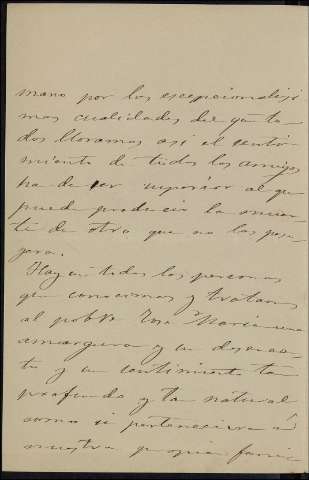 mano por las escepcionalisi
mas cualidades del que to
dos lloramos asi el senti-
miento de todos los amigos
ha de ser superior al que
puede producir la muer-
te de otro que no las pose
yera.
Hay en todas las personas
que conocemos y tratan
al pobre Jose Maria una
amargura y un descon
y un sentimiento ta
profundo y tan natural
como si perteneciera á
nuestra propia fami